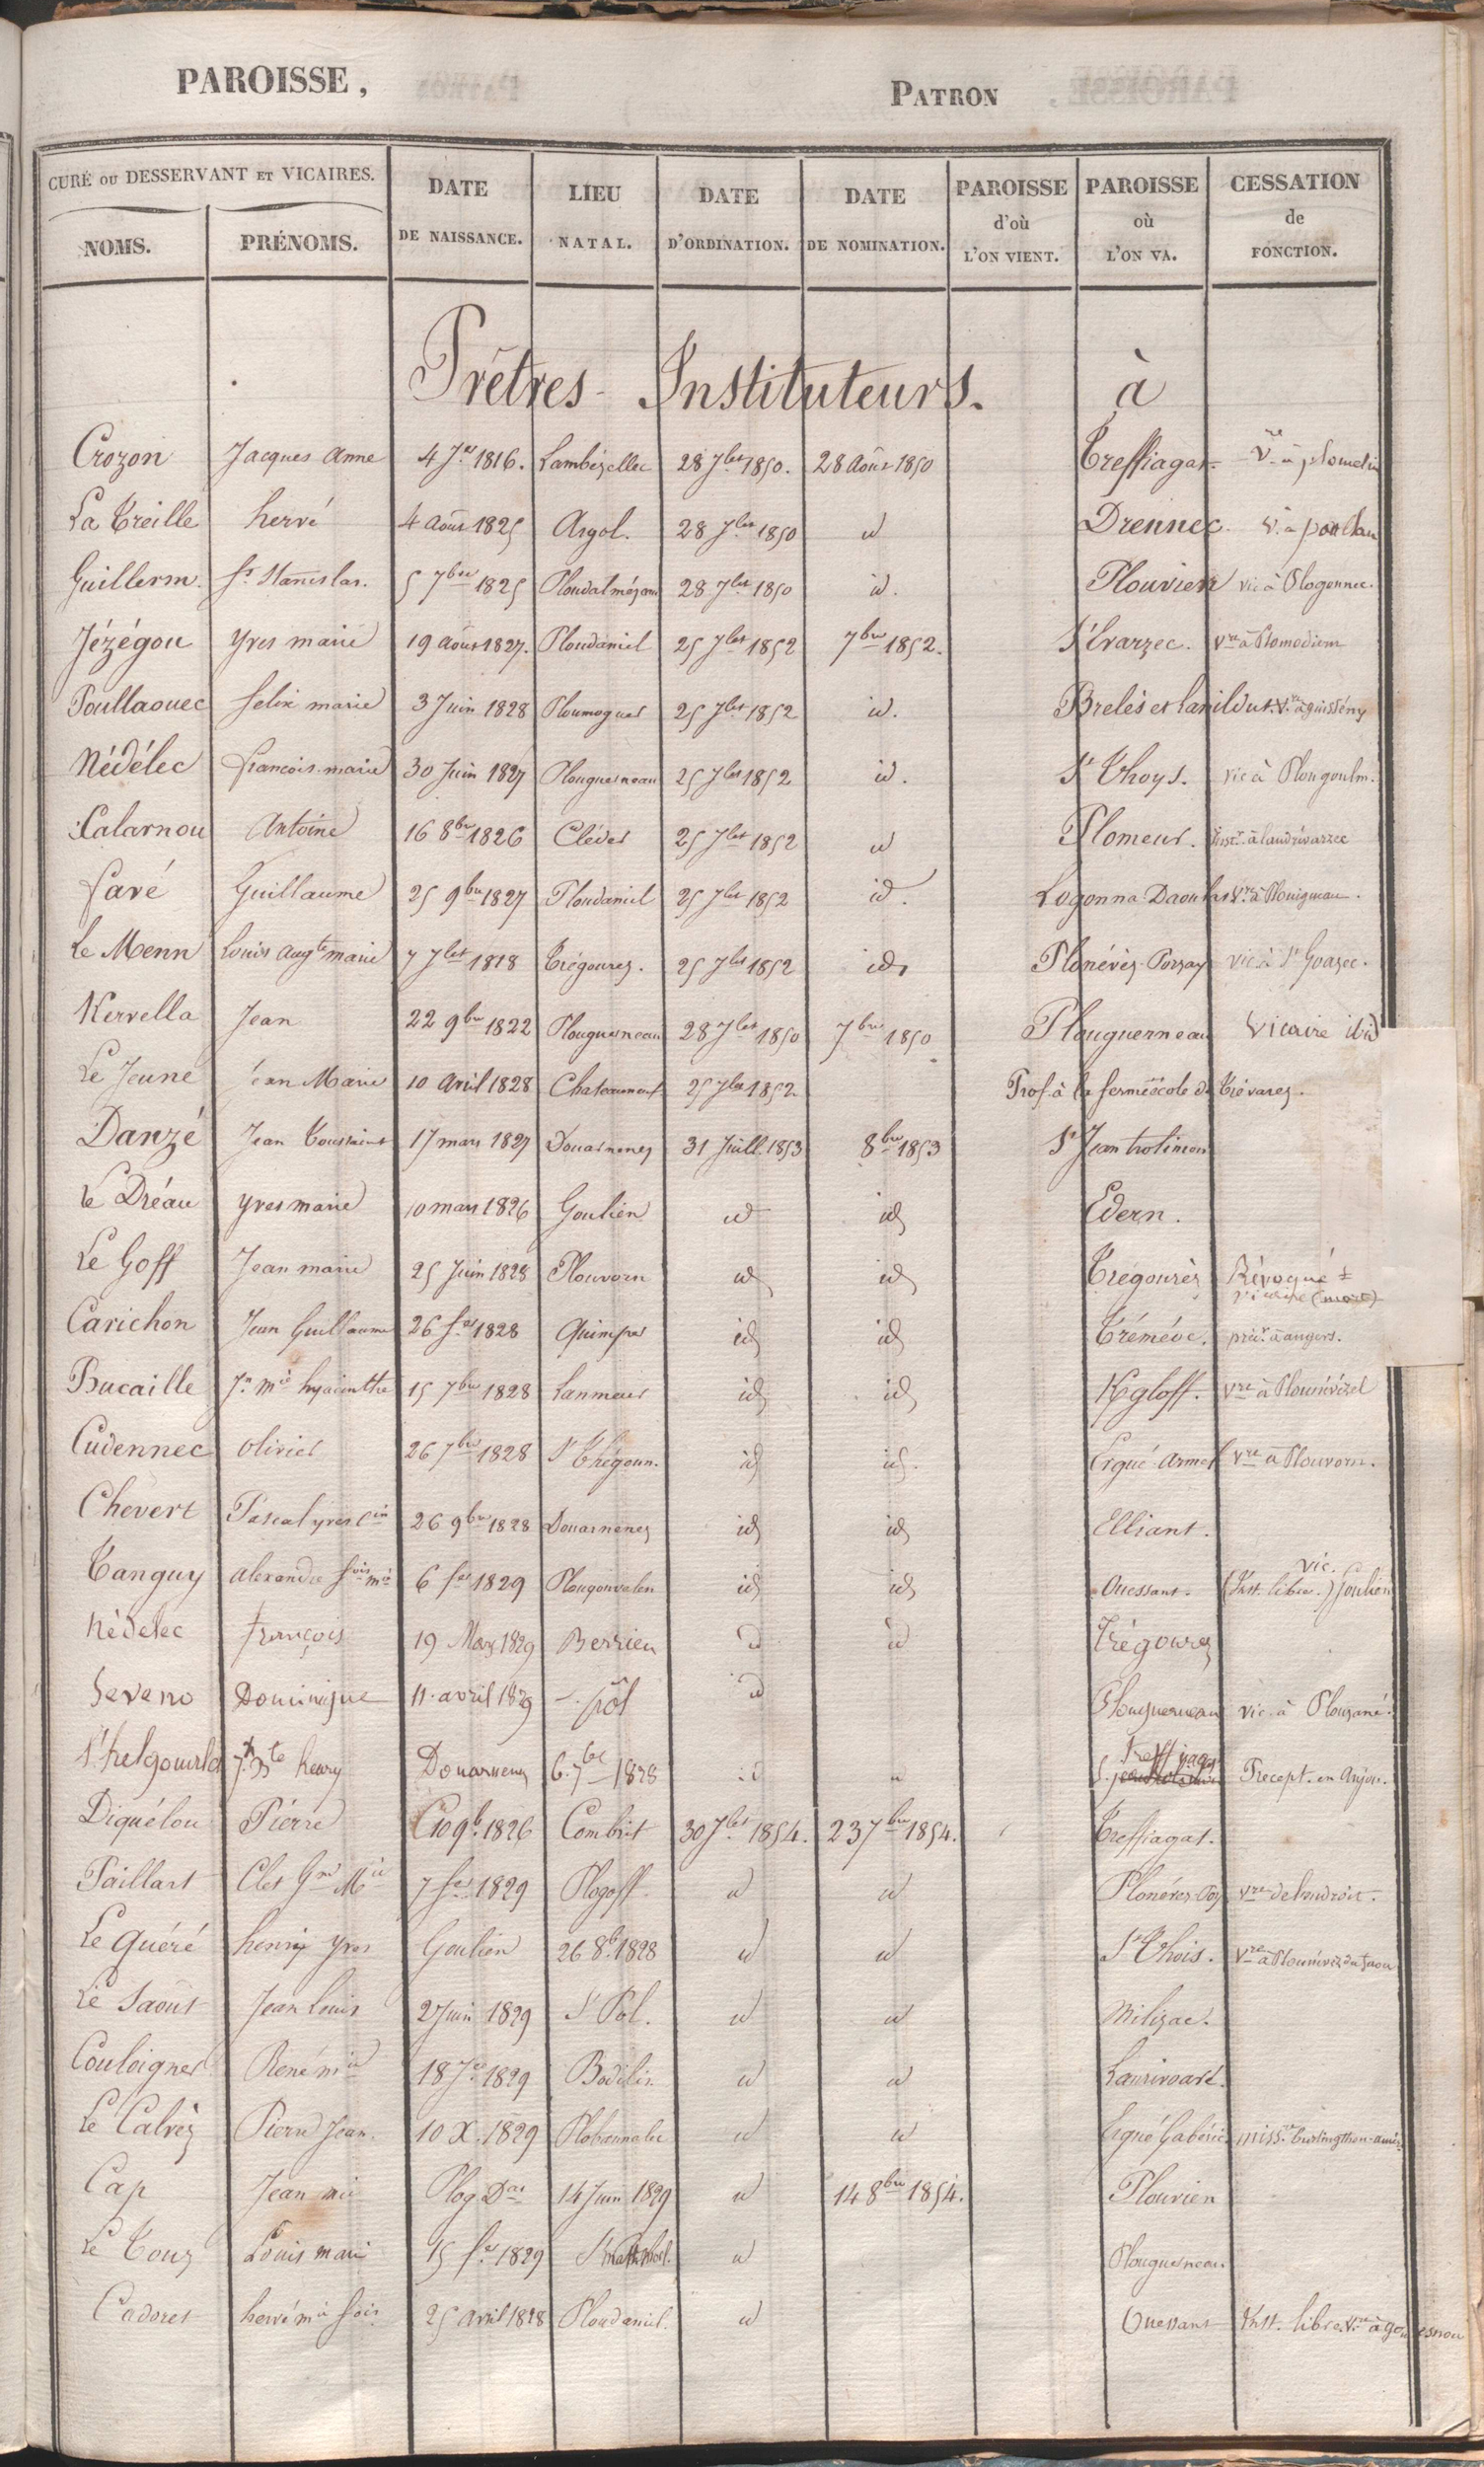 PAROISSE, PATRON
CURÉ OU DESSERVANT ET VICAIRES. DATE DE NAISSANCE. LIEU NATAL. DATE D'ORDINATION. DATE DE NOMINATION. PAROISSE d'où L'ON VIENT. PAROISSE où L'ON VA. CESSATION de FONCTION.
NOMS. PRÉNOMS.
Prêtres-Instituteurs. à
Crozon Jacques Anne 4 Jer 1816. Lambézellec 28 Jlet 1850. 28 Août 1850 Treffiagat. Vre à plomelin
La Treille hervé 4 Août 1825 Argol. 28 Jlet 1850 id Drennec. V. à poullan
Guillerm. fs Stanislas. 5 7bre 1825 Ploudalmézeau 28 Jlet 1850 id. Plouvien vic à Plogonnec.
Jézégou Yves marie 19 Août 1827. Ploudaniel 25 Jlet 1852 7bre 1852. St Evarzec. Vre à Plomodiern
Poullaouec felix marie 3 Juin 1828 Ploumoguer 25 Jlet 1852 id. Brelès et Lanildut. Vre à guissény
Nédélec françois-marie 30 Juin 1827 Plouguerneau 25 Jlet 1852 id. St Thoys. vic à Plougoulm.
Calarnou Antoine 16 8bre 1826 Cléder 25 Jlet 1852 id Plomeur. Instr. à landrévarzec
favé Guillaume 25 9bre 1827 Ploudaniel 25 Jlet 1852 id. Logonna Daoulas Vre à Plouigneau.
Le Menn Louis Augte marie 7 Jlet 1818 Trégourez. 25 Jlet 1852 id. Plonévez-Porzay vic. à St Goazec.
Kervella Jean 22 9bre 1822 Plouguerneau 28 Jlet 1850 7bre 1850 Plouguerneau Vicaire ibid
Le Jeune Jean Marie 10 Avril 1828 Chateauneuf 25 Jlet 1852. Prof. à la ferme école de Trévarez.
Danzé Jean Toussaint 17 mars 1827 Douarnenez 31 Juill. 1853 8bre 1853 St Jean trolimon
Le Dréau yves marie 10 mars 1826 Goulien id id Edern.
Le Goff Jean marie 25 Juin 1828 Plouvorn id id Trégourèz Révoqué
vicaire (mort)
Carichon Jean Guillaume 26 fer 1828 Quimper id id Tréméoc. préc. à angers.
Bucaille Jn mie hyacinthe 15 7bre 1828 Lanmeur id id Kgloff. Vre à Plounévézel
Cudennec Olivier 26 7bre 1828 St Thégonn. id id. Ergué-Armel Vre à Plouvorn.
Chevert Pascal yves Cin 26 9bre 1828 Douarnenez id id Elliant.
Tanguy Alexandre fois mie 6 fer 1829 Plougonvelen id id Ouessant. (Inst. libre.) vic. Goulien
Nédelec françois 19 Mars 1829 Berrien id id Trégourez
Seveno Dominique 11 avril 1829 St. pôl id Plouguerneau vic. à Plouzané.
St helgouarch Jn Bte henry Douarnenez 6. 7bre 1828 id id S. Jean trolimon Treffiagat Precept. en Anjou.
Diquélou Pierre 10 9b. 1826 Combrit 30 Jlet 1854. 23 7bre 1854. Treffiagat.
Paillart Clet Gme Mie 7 fer 1829 Plogoff. id id Plonévez-Por vre de landroit.
Le Quéré henry Yves Goulien 26 8b. 1828 id id St Thois. Vre à Plounévez du faou
Le Saout Jean Louis 2 Juin 1829 St Pol. id id Milizac.
Couloigner René mie 18 Jer 1829 Bodilis id id Lanrivoaré.
Le Calvez Pierre Jean. 10 X. 1829 Plobannalec id id Ergué Gabéric miss. Burlingthon-amér.
Cap Jean mie Plog. Das 14 Juin 1829 id 14 8bre 1854. Plouvien
Le Touz Louis marie 15 fer 1829 id Plouguerneau.
Cadoret hervé mie fois 25 avril 1828 Ploudaniel. id Ouessant Inst. libre. Vre à gouesnou